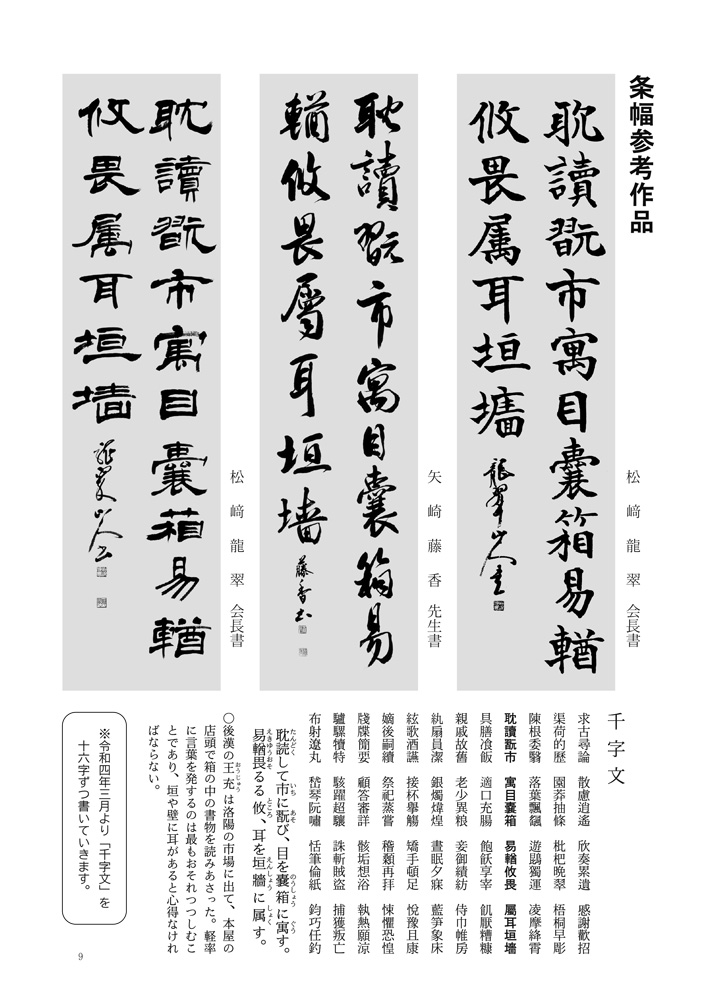 条幅参考作品
耽讀翫市寓目囊箱易輶
攸畏属耳垣墻
龍翠山人書
松﨑龍翠会長書
耽讀翫市寓目囊箱易
輶攸畏屬耳垣墻
藤香書
矢崎藤香先生書
耽讀翫市寓目囊箱易輶
攸畏属耳垣墻
龍翠山人書
松﨑龍翠会長書
千字文
求古尋論 散慮逍遙 欣奏累遣 感謝歡招
渠荷的歷 園莽抽條 枇杷晩翠 梧桐早彫
陳根委翳 落葉飄颻 遊鵾獨運 凌摩絳霄
耽讀翫市 寓目囊箱 易輶攸畏 屬耳垣墻
具膳飡飯 適口充腸 飽飫享宰 飢厭糟糠
親戚故舊 老少異粮 妾御績紡 侍巾帷房
紈扇員潔 銀燭煒煌 晝眠夕寐 藍笋象床
絃歌酒讌 接杯擧觴 矯手頓足 悅豫且康
嫡後嗣續 祭祀蒸嘗 稽顙再拝 悚懼恐惶
牋牒簡要 顧答審詳 骸垢想浴 執熱願涼
驢騾犢特 駭躍超驤 誅斬賊盜 捕獲叛亡
布射遼丸 嵆琴阮嘯 恬筆倫紙 鈞巧任釣
耽読して市に翫び、目を嚢箱に寓す。
たんどく いち あそ のうしょう ぐう
易輶畏るる攸、耳を垣牆に属す。
えきゆうおそ ところ えんしょう しょく
〇後漢の王充は洛陽の市場に出て、本屋の
おうじゅう
店頭で箱の中の書物を読みあさった。軽率
に言葉を発するのは最もおそれつつしむこ
とであり、垣や壁に耳があると心得なけれ
ばならない。
※令和四年三月より「千字文」を
十六字ずつ書いていきます。
9